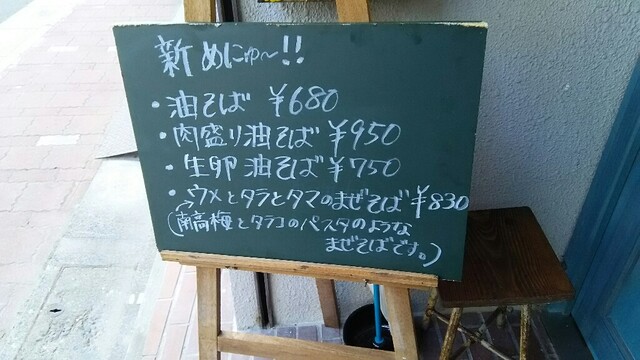 新 めにゅ〜!!
・油そば ¥680
・肉盛り油そば ¥950
・生卵 油そば ¥750
・ウメとタラとタマのまぜそば ¥830
(南高梅とタラコのパスタのような
まぜそばです。)